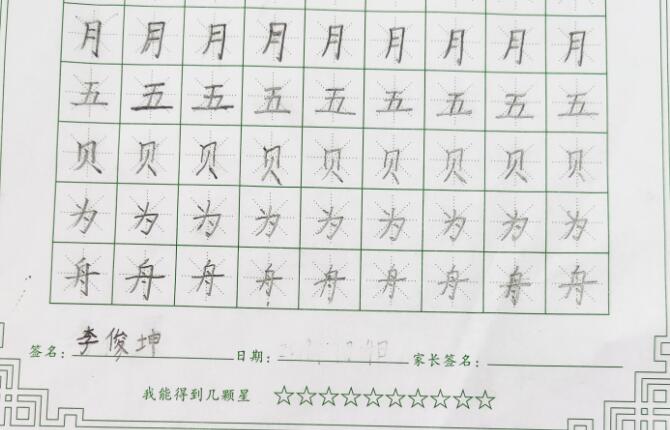 月月月月月月月月月
五五五五五五五五五
贝贝贝贝贝贝贝贝贝
为为为为为为为为为
舟舟舟舟舟舟舟舟舟
签名：李俊坤 日期： 家长签名：
我能得到几颗星 ☆☆☆☆☆☆☆☆☆☆